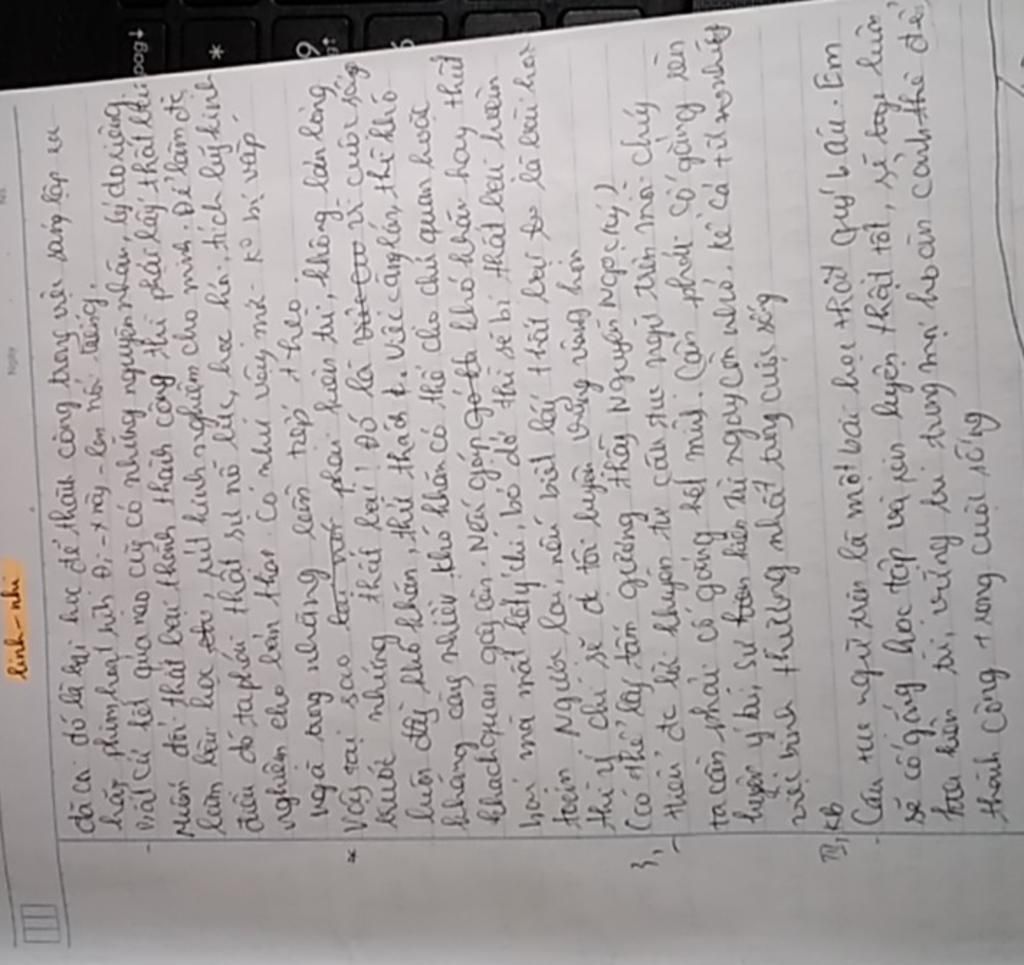 linh-nhi
đã có đó là bài học để thành công trong việc sáng lập ra
hãng phim hoạt hình Đi-xnây-len nổi tiếng.
- Bất cứ kết quả nào cũng có những nguyên nhân, lý do riêng.
Muốn đổi thất bại thành thành công thì phải lấy thất bại
làm bài học, rút kinh nghiệm cho mình. Để làm đc
điều đó ta phải thật sự nỗ lực, học hỏi, tích lũy kinh
nghiệm cho bản thân. Có như vậy mới k° bị vấp
ngã trong những lần tiếp theo.
* Vậy tại sao phải kiên trì, không bằng lòng
trước những thất bại? Đó là vì cuộc sống
luôn đầy khó khăn, thử thách. Việc càng lớn, thì khó
khăng càng nhiều khó khăn có thể cho chủ quan hoặc
khách quan gây lên. Nếu gặp khó khăn hay thất
bại mà mất hết ý chí, bỏ dở thì sẽ bị thất bại hoàn
toàn. Ngược lại, nếu biết lấy thất bại là bài học
thì ý chí sẽ đc tôi luyện vững vàng hơn
(có thể lấy tấm gương thầy Nguyễn Ngọc Ký)
3,
- Hiểu đc lời khuyên từ câu tục ngữ trên mỗi chúng
ta cần phải cố gắng hết mình. Cần phải cố gắng rèn
luyện ý trí, sự kiên trì ngay còn nhỏ, kể cả từ những
việc bình thường nhất trong cuộc sống
III, KB
- Câu tục ngữ trên là một bài học thật quý báu. Em
sẽ cố gắng học tập và rèn luyện thật tốt, sẽ luôn
kiên trì, vững trí trong mọi hoàn cảnh thể để
thành công trong cuộc sống